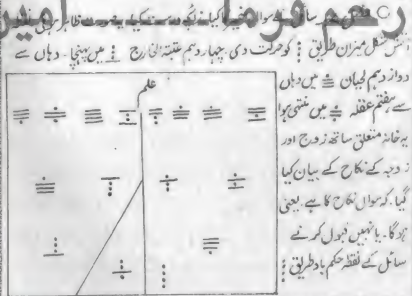 رحم فرما امین
نقش شکل میزان طریق ⁞ کو حرکت دی چہار دہم عتبۃ الخارج میں پہنچا ۔ وہاں سے
دوازدہم لحیان میں وہاں
سے ہفتم عقلہ میں منتہی ہوا
یہ خانہ متعلق ساتھ زوج اور
زوجہ کے نکاح کے بیان کیا
گیا ۔ کہ سوال نکاح کا ہے یعنی
ہوگا ۔ یا نہیں قبول کرنے
سائل کے نقطہ حکم باد طریق ⁞
علم